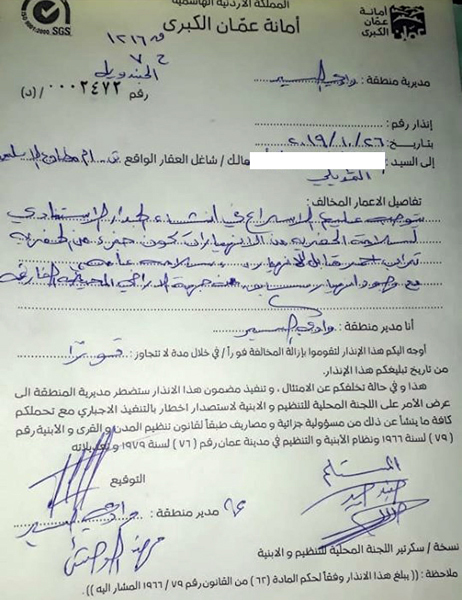 المملكة الأردنية الهاشمية
أمانة عمّان الكبرى
أمانة
عمّان
الكبرى
SGS
ق ١٢١٦
ح ٧
الجندويل
رقم ٠٠٠٢٤٧٢ / (د)
مديرية منطقة : وادي السير
إنذار رقم :
بتاريخ : ٢٠١٩/١٠/٢٦
إلى السيد : مالك / شاغل العقار الواقع
تفاصيل الاعمار المخالف :
يتوجب عليكم الاسراع في انشاء الجدار الاستنادي
لسلامة الحفرية من الانهيار كون جزء من الحفرية
تراب
مع وجود انهيار سابق من جهة الاراضي المحيطة الفارغة
أنا مدير منطقة : وادي السير
أوجه اليكم هذا الإنذار لتقوموا بإزالة المخالفة فوراً / في خلال مدة لا تتجاوز : فورًا
من تاريخ تبليغكم هذا الإنذار.
هذا و في حالة تخلفكم عن الامتثال ، و تنفيذ مضمون هذا الانذار ستضطر مديرية المنطقة الى
عرض الأمر على اللجنة المحلية للتنظيم و الابنية لاستصدار اخطار بالتنفيذ الاجباري مع تحملكم
كافة ما ينشأ عن ذلك من مسؤولية جزائية و مصاريف طبقاً لقانون تنظيم المدن و القرى و الابنية رقم
( ٧٩ ) لسنة ١٩٦٦ ونظام الابنية و التنظيم في مدينة عمان رقم ( ٦٧ ) لسنة ١٩٧٩ و تعديلاته
التوقيع
المستلم
مدير منطقة : وادي السير
نسخة / سكرتير اللجنة المحلية للتنظيم و الابنية
ملاحظة : (( يبلغ هذا الانذار وفقاً لحكم المادة (٦٢) من القانون رقم ٧٩ / ١٩٦٦ المشار اليه )).